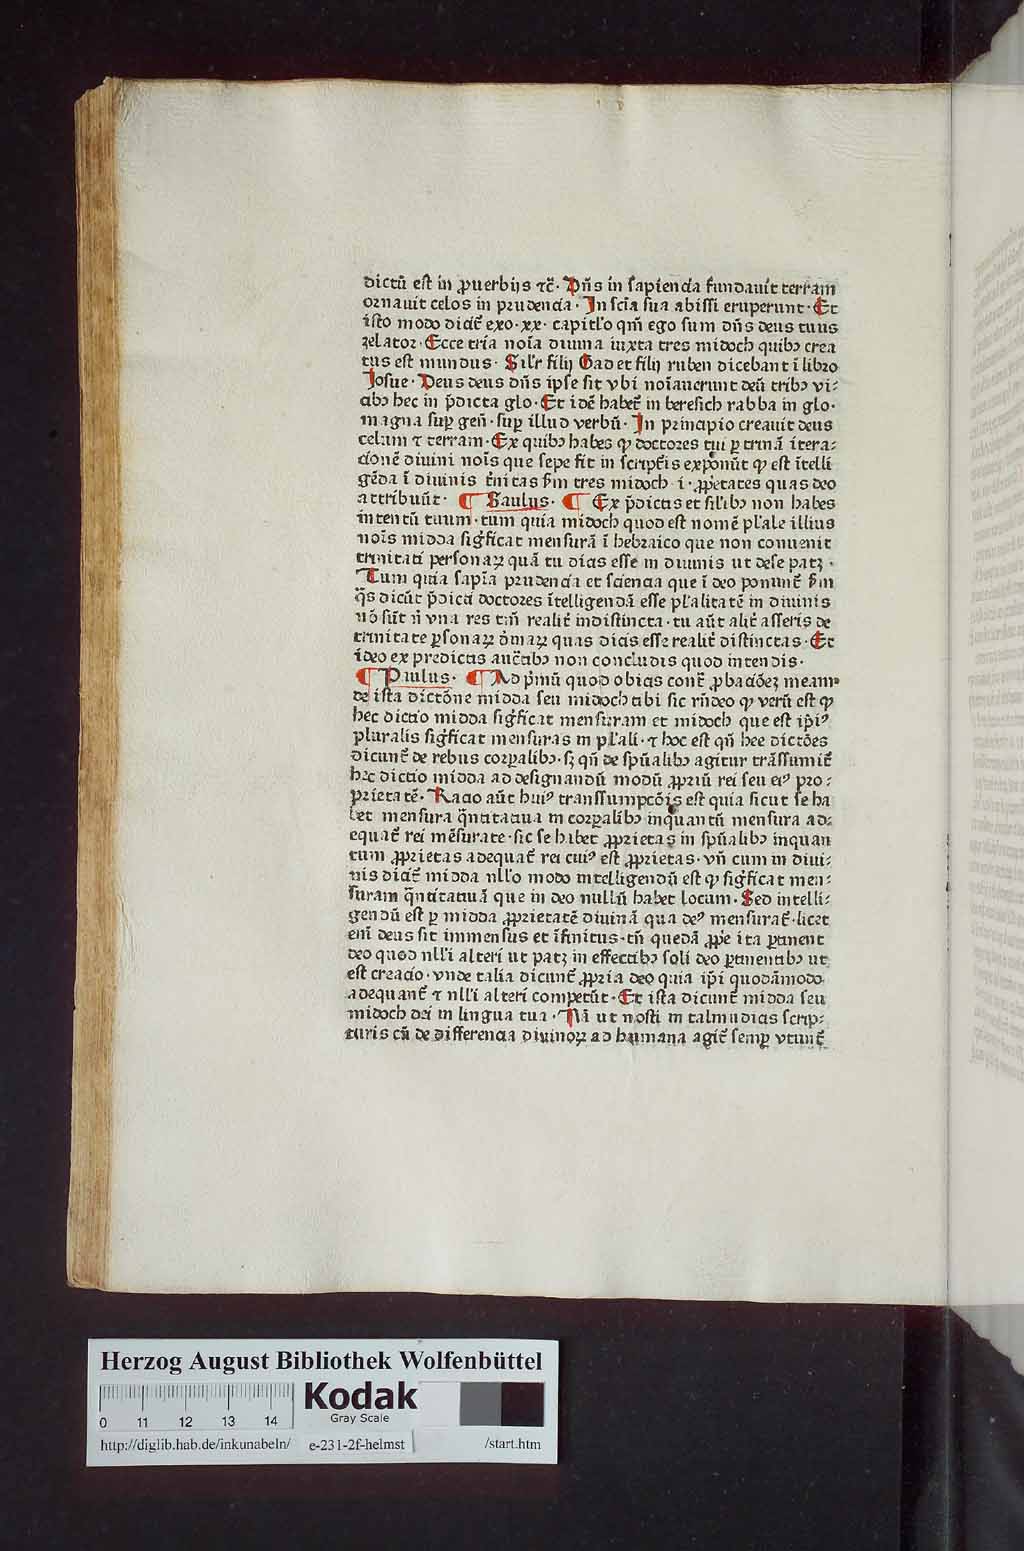 dictū est in ꝓuerbijs ⁊c̄· Dn̄s in sapiencia fundauit terram
ornauit celos in prudencia · In scīa sua abissi eruperunt· Et
isto modo dicit̄ exo·xx· capitl'o qm̄ ego sum dn̄s deus tuus
zelator· Ecce tria noīa diuina iuxta tres midoch quibꝫ crea
tus est mundus· Sil'r filij Gad et filij ruben dicebant ī libro
Josue· Deus deus dn̄s ipse sit vbi noīauerunt deū tribꝫ vi⸗
cibꝫ hec in p̄dicta glo· Et idē habet̄ in beresich rabba in glo·
magna suꝑ gen̄· suꝑ illud verbū· In principio creauit deus
celum ⁊ terram· Ex quibꝫ habes ꝙ doctores tui ꝑ trinā itera⸗
cionē diuini noīs que sepe fit in script̄is exponūt ꝙ est ītelli
gēda ī diuinis t̄nitas ẜm tres midoch·i·ꝓp̄etates quas deo
attribuūt· ¶ Saulus· ¶ Ex p̄dictis et sil'ibꝫ non habes
intentū tuum·tum quia midoch quod est nomē pl'ale illius
noīs midda sigīficat mensurā ī hebraico que non conuenit
trinitati personaꝝ quā tu dicis esse in diuinis ut de se patꝫ·
Tum quia sapīa prudencia et sciencia que ī deo ponunt̄ ẜm
q̄s dicūt p̄dicti doctores ītelligendā esse pl'alitatē in diuinis
nō sūt n̄ vna res tm̄ realit̄ indistincta·tu aūt alit̄ asseris de
trinitate ꝑsonaꝝ om̄aꝝ quas dicis esse realit̄ distinctas· Et
ideo ex predictis auc̄tibꝫ non concludis quod intendis·
¶ Paulus· ¶ Ad p̄mū quod obicis cont̄ ꝓbacōeꝫ meam
de ista dictōne midda seu midoch tibi sic rn̄deo ꝙ verū est ꝙ
hec dictio midda sigīficat mensuram et midoch que est ip̄iꝰ
pluralis sigīficat mensuras in pl'ali·⁊ hoc est qn̄ hee dictōes
dicunt̄ de rebus corꝑalibꝫ·sꝫ qn̄ de sp̄ualibꝫ agitur trāssumit̄
hec dictio midda ad designandū modū ꝓpriū rei seu eiꝰ pro⸗
prietatē· Racio aūt huiꝰ transsumpcōis est quia sicut se ha
bet mensura q̄ntitatiua in corꝑalibꝫ inquantū mensura ad⸗
equat̄ rei mēsurate·sic se habet ꝓprietas in sp̄ualibꝫ inquan
tum ꝓprietas adequat̄ rei cuiꝰ est ꝓprietas·vn̄ cum in diui⸗
nis dicit̄ midda nll'o modo intelligendū est ꝙ sigīficat men⸗
suram q̄ntitatiuā que in deo nullū habet locum· Sed intelli⸗
gendū est ꝑ midda ꝓprietatē diuinā qua deꝰ mensurat̄·licet
enī deus sit immensus et īfinitus·tn̄ quedā ꝓpe ita ꝑtinent
deo quod nll'i alteri ut patꝫ in effectibꝫ soli deo ꝑtinentibꝫ ut
est creacio·vnde talia dicunt̄ ꝓpria deo quia ip̄i quodāmodo
adequant̄ ⁊ nll'i alteri competūt· Et ista dicunt̄ midda seu
midoch dei in lingua tua· Nā ut nosti in talmudicis scrip⸗
turis cū de differencia diuinoꝝ ad humana agit̄ semꝑ vtunt̄
Herzog August Bibliothek Wolfenbüttel
0 11 12 13 14
Kodak
Gray Scale
http://diglib.hab.de/inkunabeln/ e-231-2f-helmst /start.htm